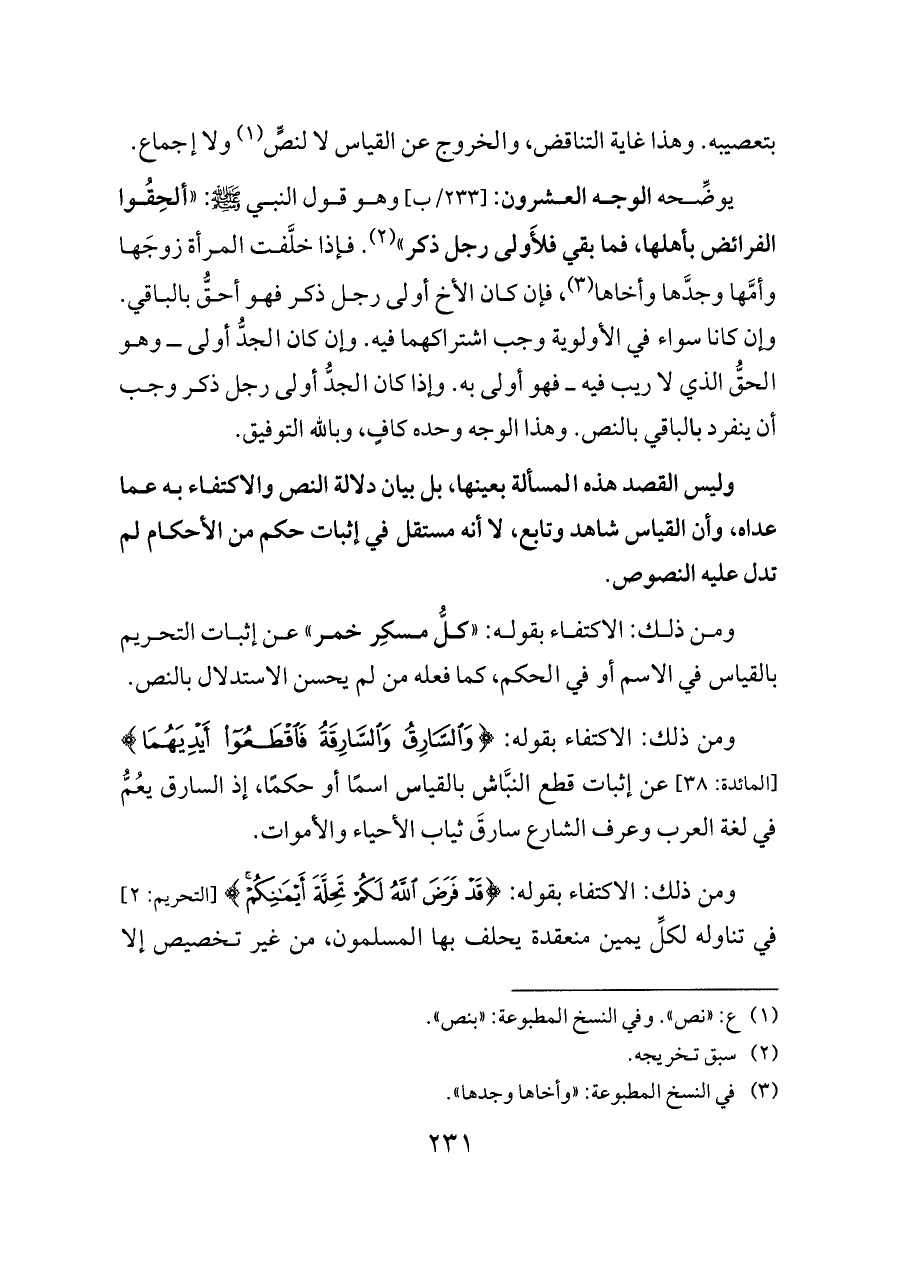 بتعصيبه. وهذا غاية التناقض، والخروج عن القياس لا لنصٍّ(١) ولا إجماع.
يوضِّحه الوجه العشرون: [٢٣٣/ب] وهو قول النبي ﷺ: «ألحِقُوا
الفرائض بأهلها، فما بقي فلأَولى رجل ذكر»(٢). فإذا خلَّفت المرأة زوجَها
وأمَّها وجدَّها وأخاها(٣)، فإن كان الأخ أولى رجل ذكر فهو أحقُّ بالباقي.
وإن كانا سواء في الأولوية وجب اشتراكهما فيه. وإن كان الجدُّ أولى ــ وهو
الحقُّ الذي لا ريب فيه ــ فهو أولى به. وإذا كان الجدُّ أولى رجل ذكر وجب
أن ينفرد بالباقي بالنص. وهذا الوجه وحده كافٍ، وبالله التوفيق.
وليس القصد هذه المسألة بعينها، بل بيان دلالة النص والاكتفاء به عما
عداه، وأن القياس شاهد وتابع، لا أنه مستقل في إثبات حكم من الأحكام لم
تدل عليه النصوص.
ومن ذلك: الاكتفاء بقوله: «كلُّ مسكِر خمر» عن إثبات التحريم
بالقياس في الاسم أو في الحكم، كما فعله من لم يحسن الاستدلال بالنص.
ومن ذلك: الاكتفاء بقوله: ﴿وَٱلسَّارِقُ وَٱلسَّارِقَةُ فَٱقۡطَعُوٓاْ أَيۡدِيَهُمَا﴾
[المائدة: ٣٨] عن إثبات قطع النبَّاش بالقياس اسمًا أو حكمًا، إذ السارق يعُمُّ
في لغة العرب وعرف الشارع سارقَ ثياب الأحياء والأموات.
ومن ذلك: الاكتفاء بقوله: ﴿قَدۡ فَرَضَ ٱللَّهُ لَكُمۡ تَحِلَّةَ أَيۡمَٰنِكُمۡۚ﴾ [التحريم: ٢]
في تناوله لكلِّ يمين منعقدة يحلف بها المسلمون، من غير تخصيص إلا
(١) ع: «نص». وفي النسخ المطبوعة: «بنص».
(٢) سبق تخريجه.
(٣) في النسخ المطبوعة: «وأخاها وجدها».
٢٣١